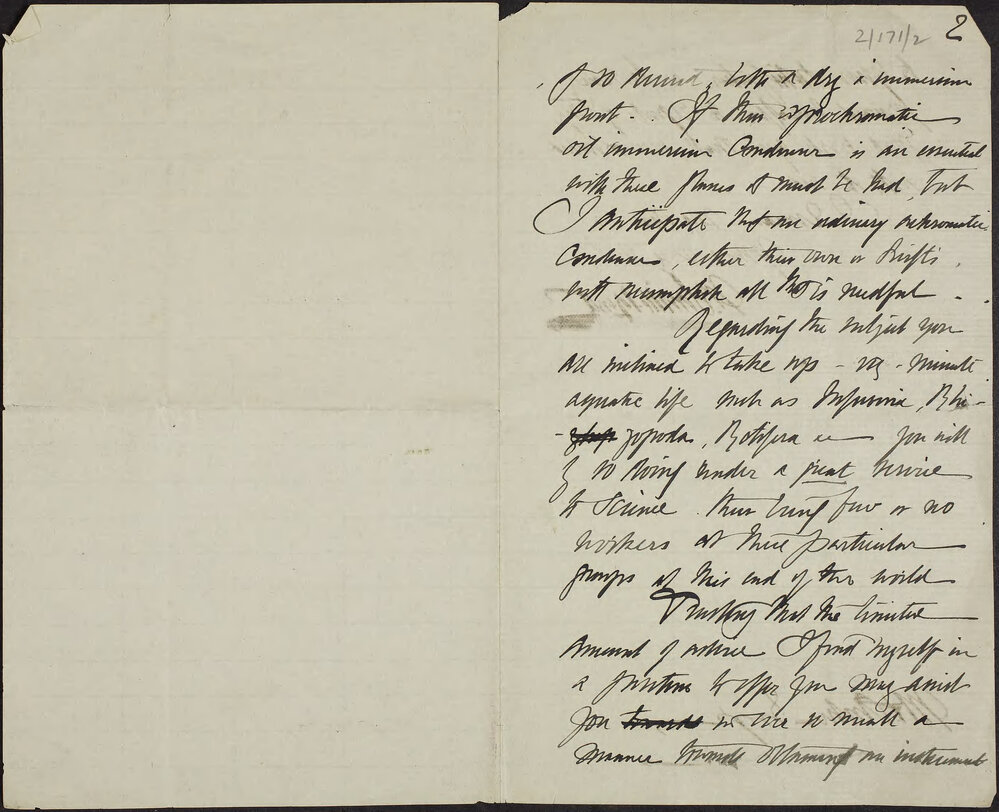 2/171/2 2
if so desired, both a dry & immersion
front. If their apochromatic
oil immersion Condenser is an essential
with these planes it must be had, but
I anticipate that an ordinary achromatic
Condenser, either their own or Swift's,
will accomplish all that is needful.
Regarding the subject you
are inclined to take up - viz - minute
aquatic life such as Infusoria, Rhi-
-zopoda, Rotifera &c you will
by so doing render a great service
to Science there being few or no
workers at these particular
groups at this end of the world
Trusting that the limited
amount of advice I find myself in
a position to offer you may assist
you in ever so small a
manner towards obtaining an instrument